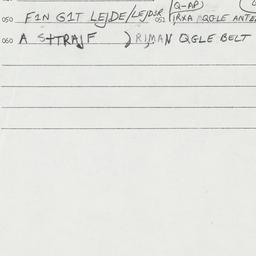 (Q-AP)
050 F1N G1T LEJDE/LEJDSR 051 IRXA QGLE ANTE
060 A S++TRAJF ) RIMAN QGLE BELT